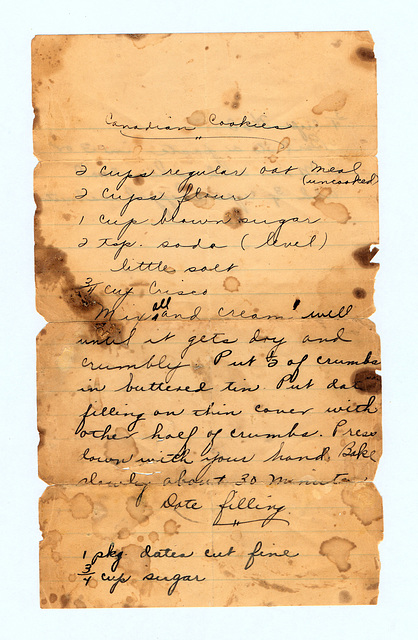 Canadian Cookies
2 cups regular oat meal
(uncooked)
2 cups flour
1 cup brown sugar
2 tsp. soda (level)
little salt
3/4 cup Crisco
Mix all and cream well
until it gets dry and
crumbly. Put of crumbs
in buttered tin. Put date
filling on thin cover with
othe half of crumbs. Press
down with your hand. Bake
slowly about 30 minutes
Date filling
1 pkg dates cut fine
3/4 cup sugar